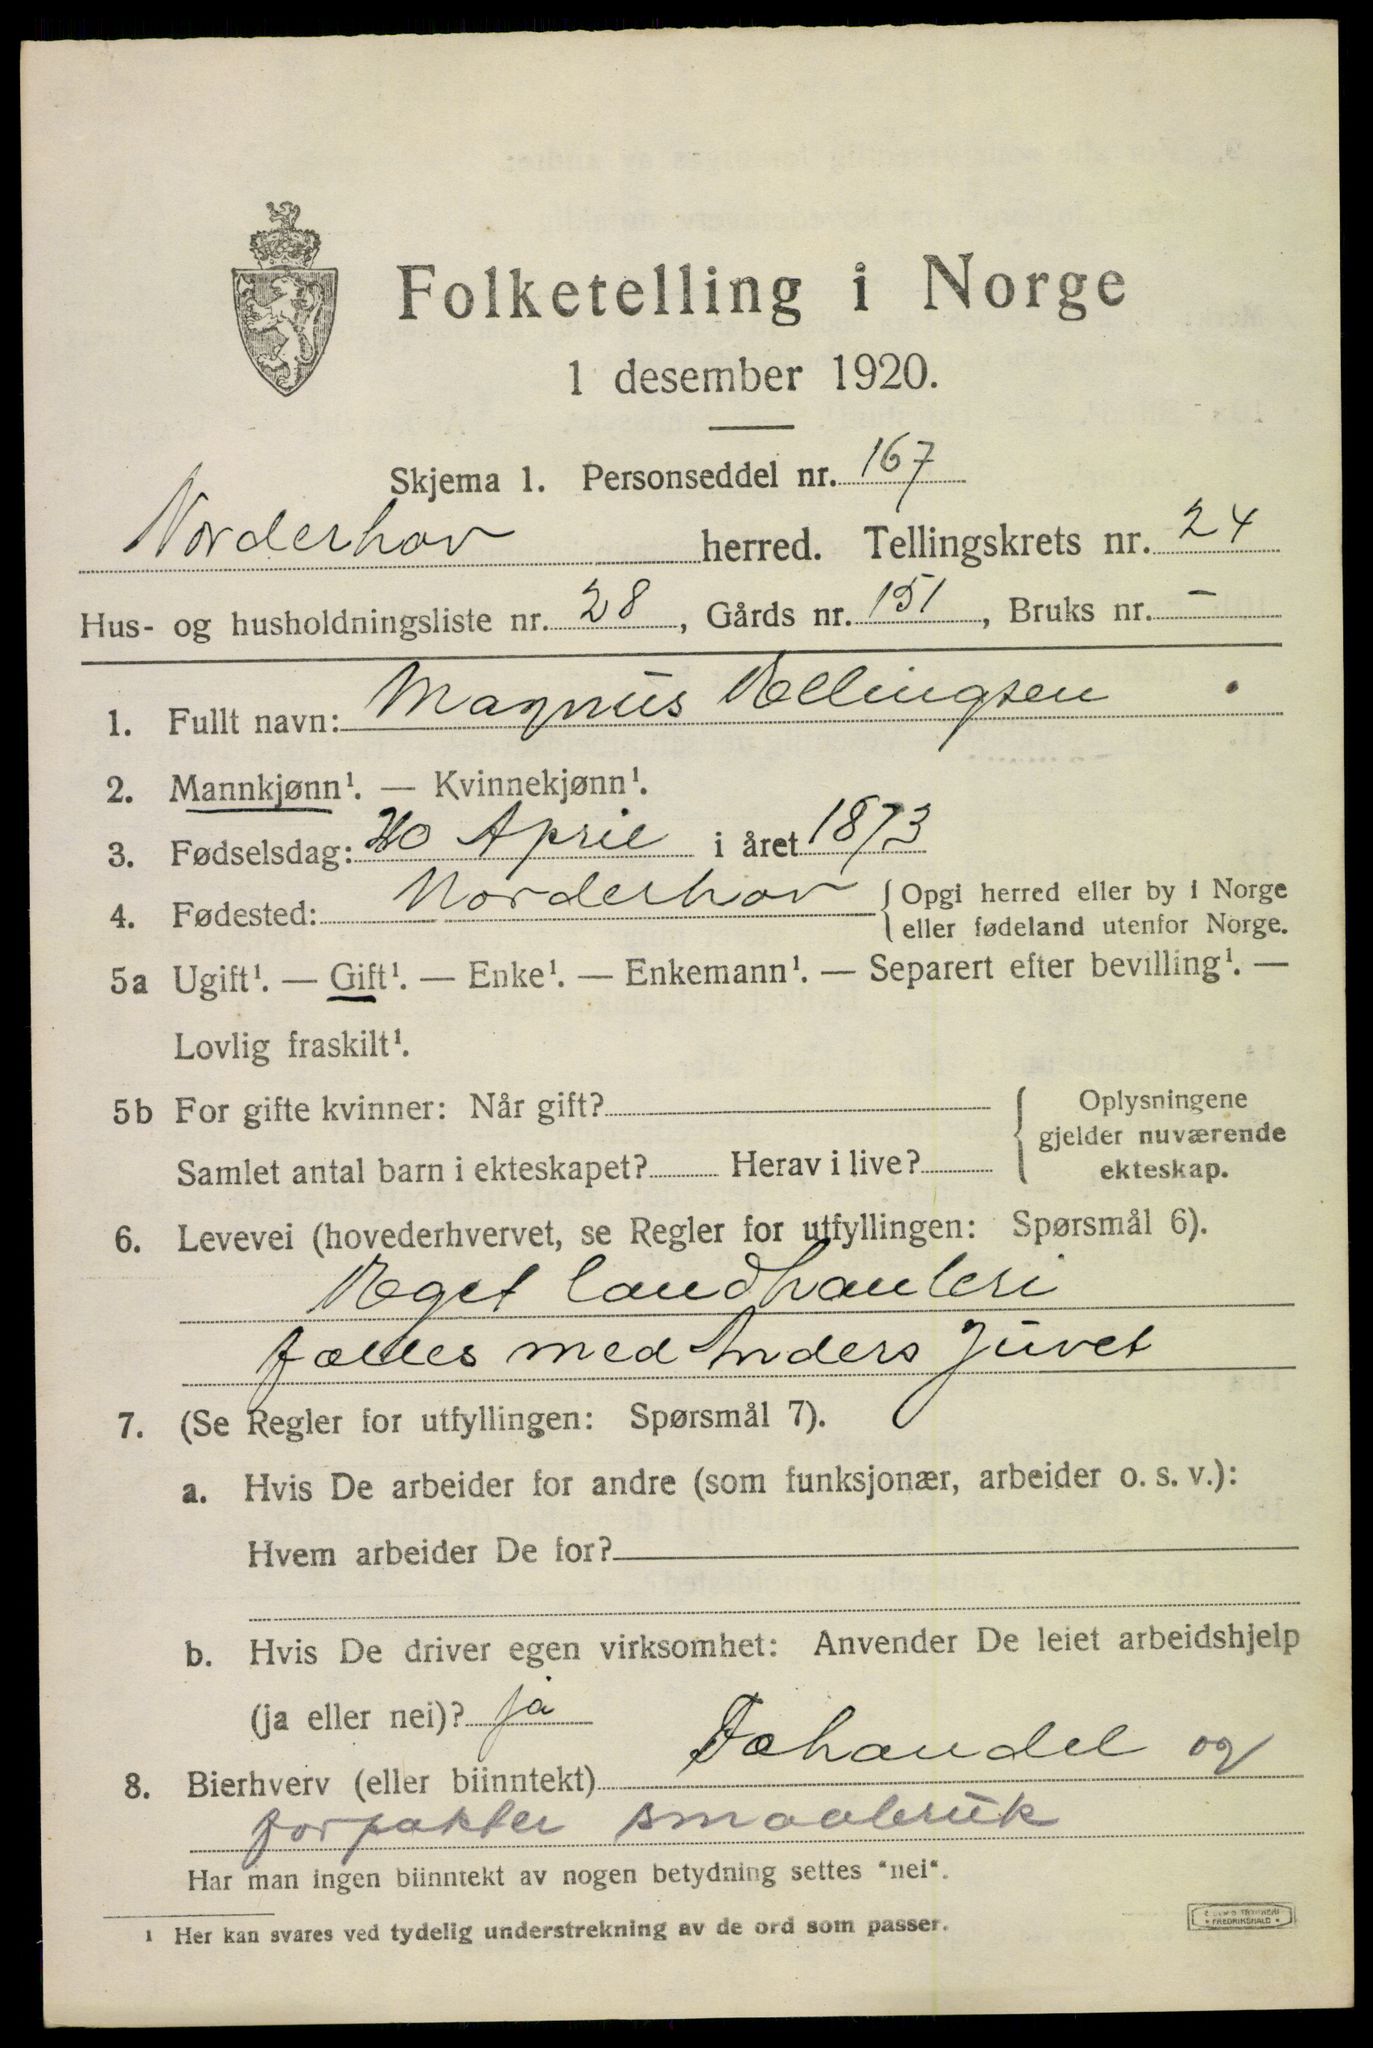 Folketelling i Norge
1 desember 1920.
Skjema 1. Personseddel nr. 167
Norderhov herred. Tellingskrets nr. 24
Hus- og husholdningsliste nr. 28, Gårds nr. 151, Bruks nr. –
1. Fullt navn: Magnus Ellingsen
2. Mannkjønn¹. — Kvinnekjønn¹.
3. Fødselsdag: April i året 1873
4. Fødested: Norderhov { Opgi herred eller by i Norge
eller fødeland utenfor Norge.
5a Ugift¹. — Gift¹. — Enke¹. — Enkemann¹. — Separert efter bevilling¹. —
Lovlig fraskilt¹.
5b For gifte kvinner: Når gift? { Oplysningene
gjelder nuværende
ekteskap.
Samlet antal barn i ekteskapet? Herav i live?
6. Levevei (hovederhvervet, se Regler for utfyllingen: Spørsmål 6).
Eget landhanleri
fælles med Anders Juvet
7. (Se Regler for utfyllingen: Spørsmål 7).
a. Hvis De arbeider for andre (som funksjonær, arbeider o. s. v.):
Hvem arbeider De for?
b. Hvis De driver egen virksomhet: Anvender De leiet arbeidshjelp
(ja eller nei)? ja
8. Bierhverv (eller biinntekt) Fæhandel og
forpakter smaabruk
Har man ingen biinntekt av nogen betydning settes "nei".
¹ Her kan svares ved tydelig understrekning av de ord som passer.
FREDRIKSHALD